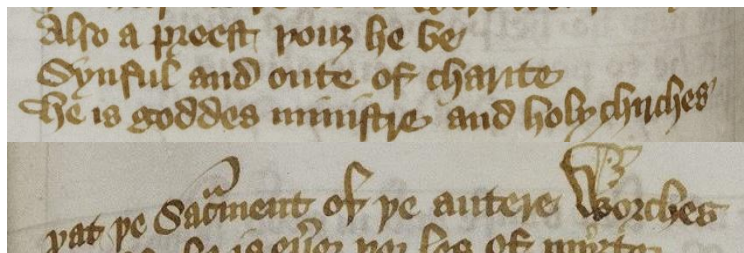 Also a preest þouȝ he be
Synful and oute of charite
he is goddes ministre and holy chirches
þat þe Sacͬment of þe autere Worches
is of